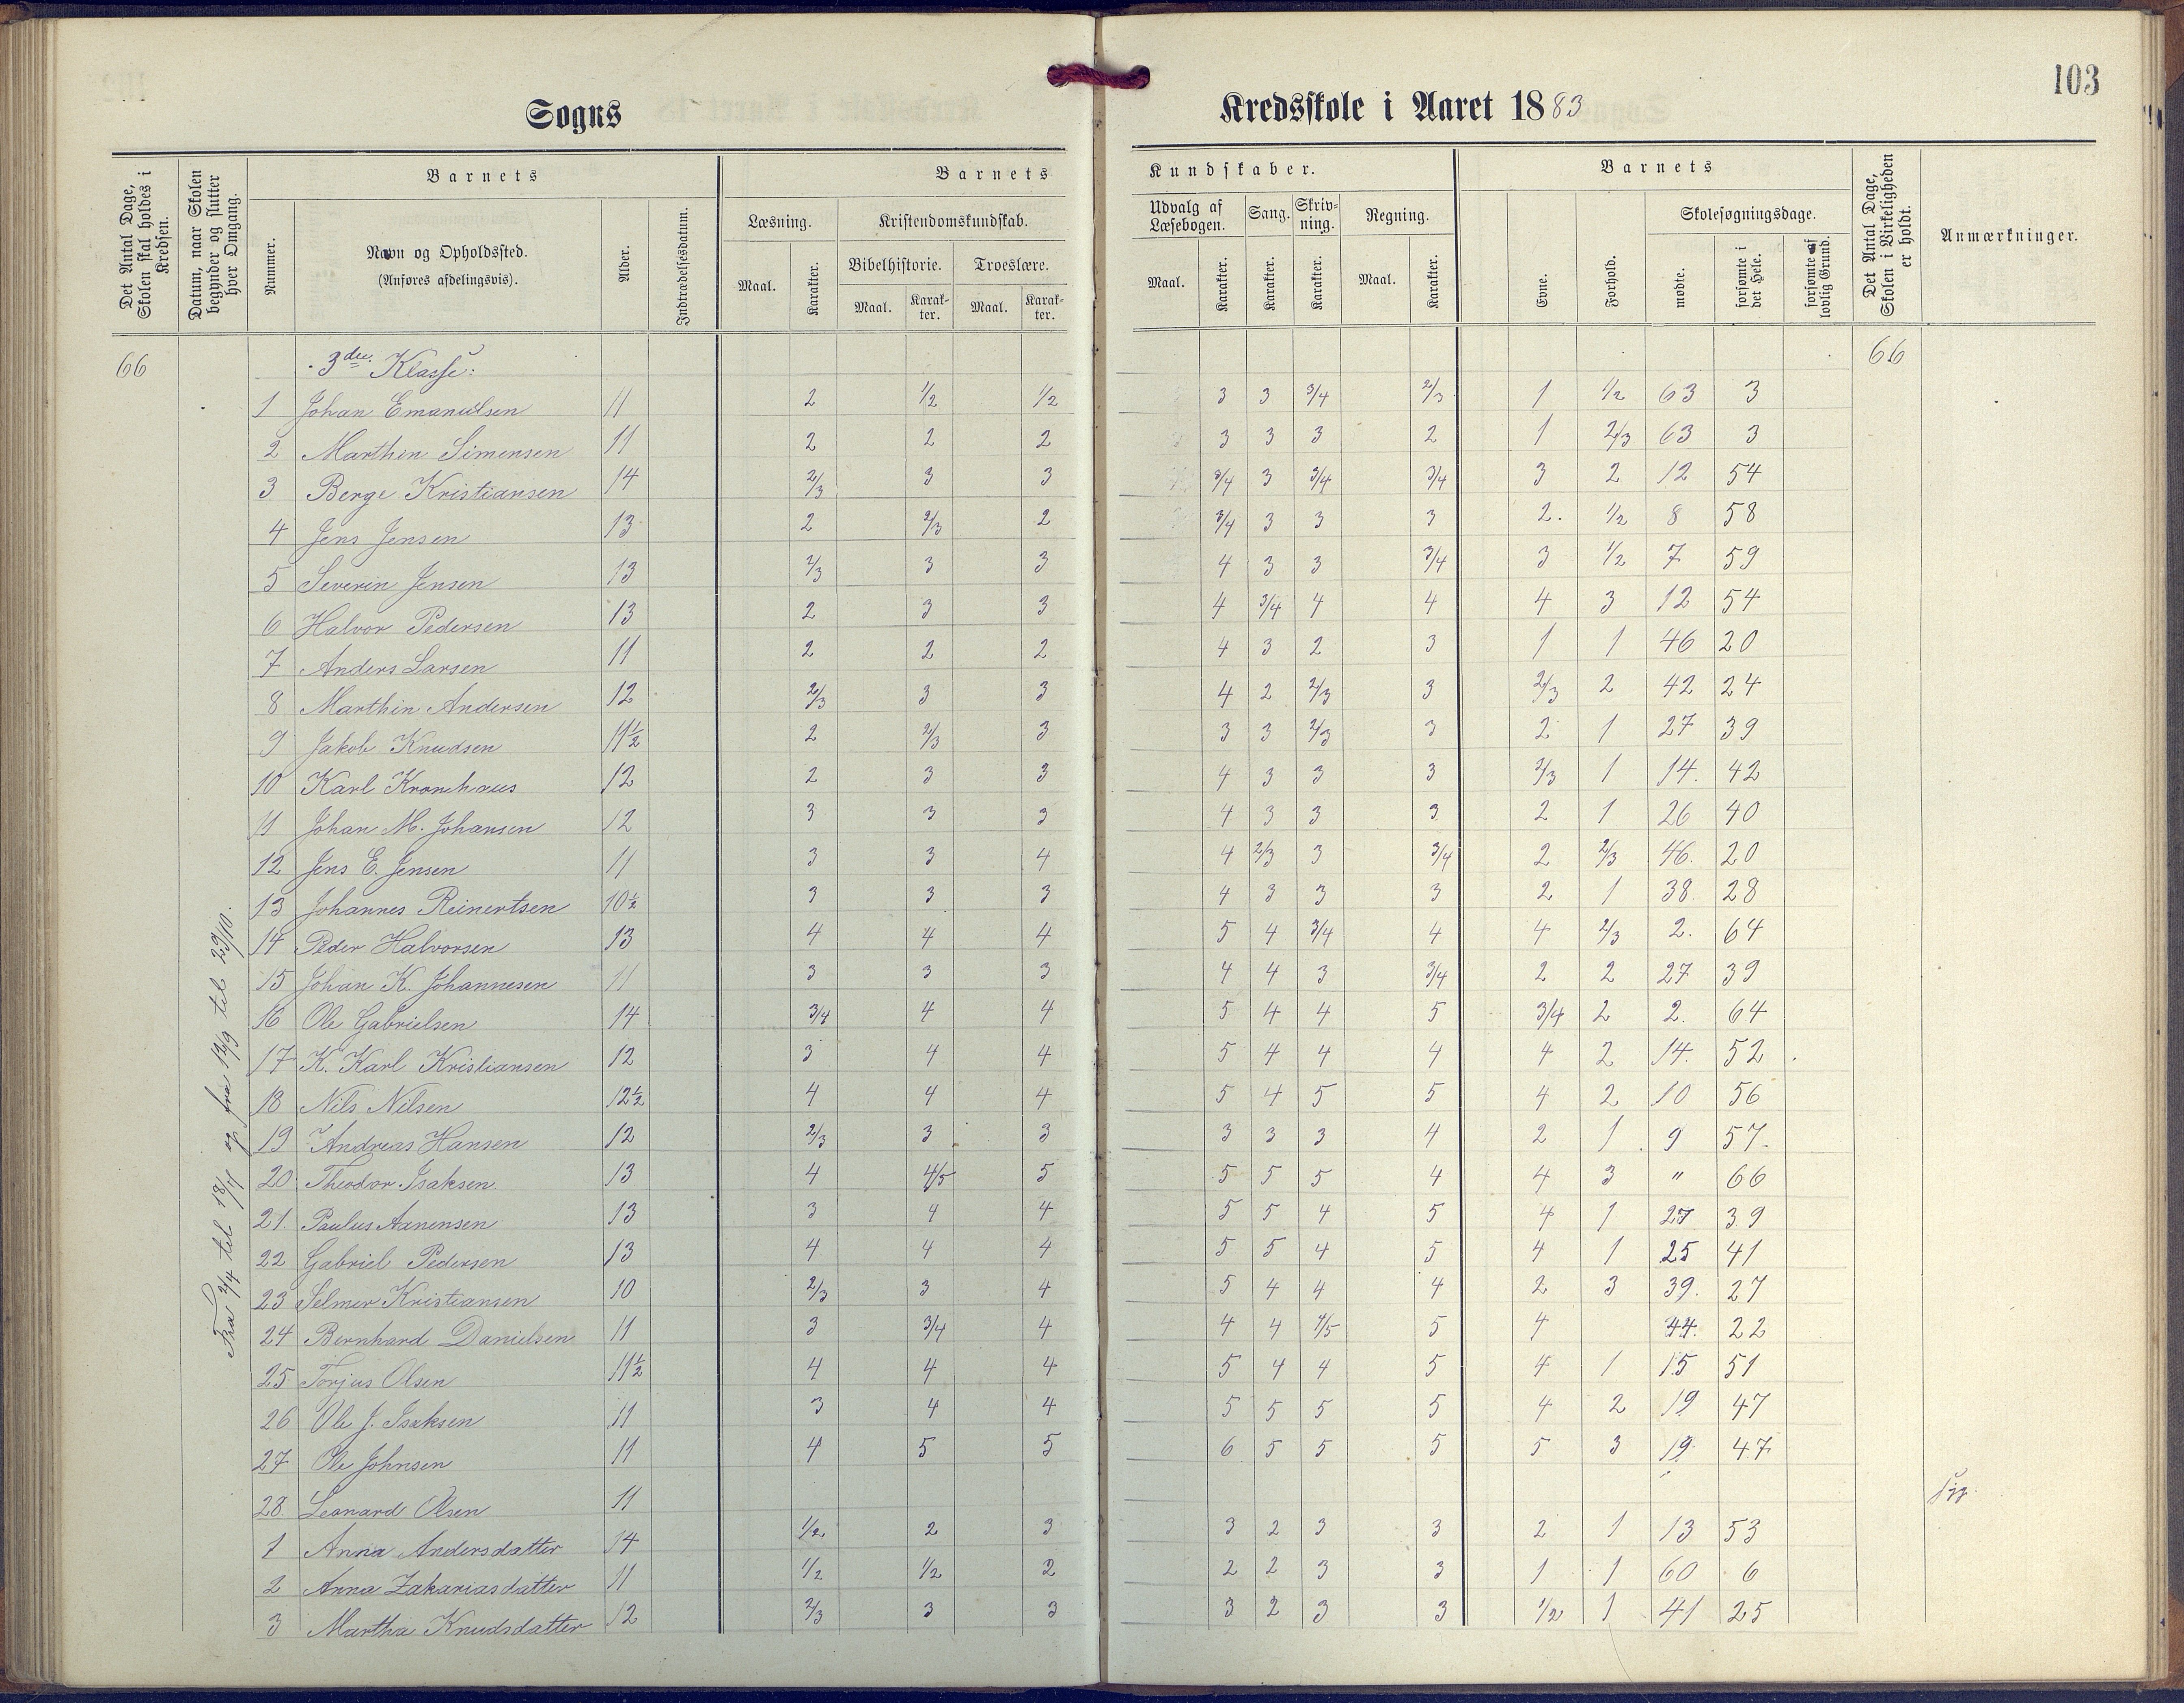 103
Sogns Kredsskole i Aaret 1883
Det Antal Dage, Skolen skal holdes i Kredsen.
Datum, naar Skolen begynder og slutter hver Omgang.
Barnets
Nummer.
Navn og Opholdssted.
(Anføres afdelingsvis).
Alder.
Indtrædelsesdatum.
Barnets Kundskaber.
Læsning.
Maal. Karakter.
Kristendomskundskab.
Bibelhistorie. Troeslære.
Maal. Karak-ter. Maal. Karak-ter.
Udvalg af Læsebogen.
Maal. Karakter.
Sang.
Karakter.
Skriv-ning.
Karakter.
Regning.
Maal. Karakter.
Barnets
Evne.
Forhold.
Skolesøgningsdage.
mødte.
forsømte i det Hele.
forsømte af lovlig Grund.
Det Antal Dage, Skolen i Virkeligheden er holdt.
Anmærkninger.
66 3die Klasse: 66
Fra 2/4 til 18/4 og fra 12/9 til 29/10.
1 Johan Emanuelsen 11 2 1/2 1/2 3 3 3/4 2/3 1 1/2 63 3
2 Marthin Simensen 11 2 2 2 3 3 3 2 1 2/3 63 3
3 Berge Kristiansen 14 2/3 3 3 3/4 3 3/4 3/4 3 2 12 54
4 Jens Jensen 13 2 2/3 2 3/4 3 3 3 2. 1/2 8 58
5 Severin Jensen 13 2/3 3 3 4 3 3 3/4 3 1/2 7 59
6 Halvor Pedersen 13 2 3 3 4 3/4 4 4 4 3 12 54
7 Anders Larsen 11 2 2 2 4 3 2 3 1 1 46 20
8 Marthin Andersen 12 2/3 3 3 4 2 2/3 3 2/3 2 42 24
9 Jakob Knudsen 11½ 2 2/3 3 3 3 2/3 3 2 1 27 39
10 Karl Kronhaus 12 2 3 3 4 3 3 3 2/3 1 14. 42
11 Johan M. Johansen 12 3 3 3 4 3 3 3 2 1 26 40
12 Jens E. Jensen 11 3 3 4 4 2/3 3 3/4 2 2/3 46. 20
13 Johannes Reinertsen 10½ 3 3 3 4 3 3 3 2 1 38 28
14 Peder Halvorsen 13 4 4 4 5 4 3/4 4 4 2/3 2. 64
15 Johan K. Johannesen 11 3 3 3 4 4 3 3/4 2 2 27 39
16 Ole Gabrielsen 14 3/4 4 4 5 4 4 5 3/4 2 2. 64
17 K. Karl Kristiansen 12 3 4 4 5 4 4 4 4 2 14. 52
18 Nils Nilsen 12½ 4 4 4 5 4 5 5 4 2 10 56
19 Andreas Hansen 12 2/3 3 3 3 3 3 4 2 1 9 57
20 Theodor Isaksen 13 4 4/5 5 5 5 5 4 4 3 " 66
21. Paulus Aanensen 13 3 4 4 5 5 4 5 4 1 27 39
22 Gabriel Pedersen 13 4 4 4 5 5 4 5 4 1 25 41
23 Selmer Kristiansen 10 2/3 3 4 5 4 4 4 2 3 39. 27
24 Bernhard Danielsen 11 3 3/4 4 4 4 4/5 5 4 44. 22
25 Torjus Olsen 11½ 4 4 4 5 4 4 5 4 1 15 51
26 Ole J. Isaksen 11 3 4 4 5 5 5 5 4 2 19 47
27 Ole Johnsen 11 4 5 5 6 5 5 5 5 3 19 47
28. Leonard Olsen 11
1 Anna Andersdatter 14 1/2 2 3 3 2 3 3 2 1 13 53
2 Anna Zakariasdatter 11 1/2 1/2 2 2 2 3 3 1 1 60 6
3 Martha Knudsdatter 12 2/3 3 3 3 2 3 3 1/2 1 41 25